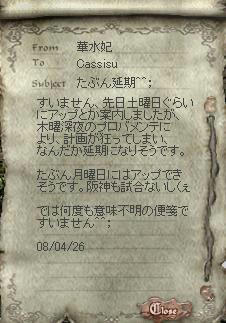 From 華水妃
To Cassisu
Subject たぶん延期^^;
すいません、先日土曜日ぐらい
にアップとか案内しましたが、
木曜深夜のプロバメンテに
より、計画が狂ってしまい、
なんだか延期になりそうです。
たぶん月曜日にはアップでき
そうです。阪神も試合ないしくぇ
では何度も意味不明の便箋で
すいません^^;
08/04/26
Close